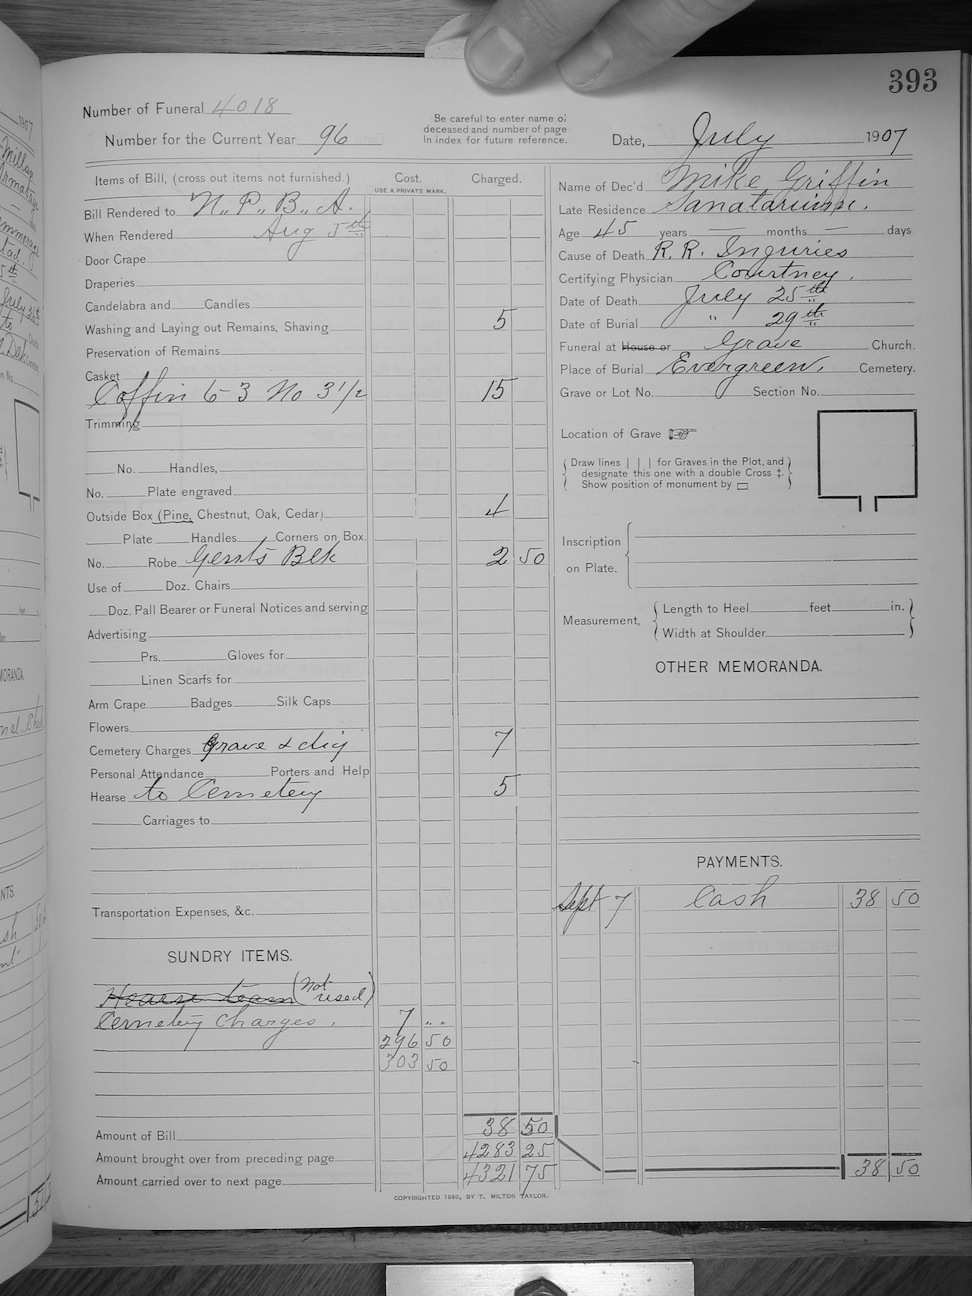 393
Number of Funeral 4018
Number for the Current Year 96
Be careful to enter name of
deceased and number of page
in index for future reference.
Date, July 1907
Items of Bill, (cross out items not furnished.)
Cost.
USE A PRIVATE MARK.
Charged.
Bill Rendered to N., P., B., A.
When Rendered Aug 5th
Door Crape
Draperies
Candelabra and Candles
Washing and Laying out Remains, Shaving 5
Preservation of Remains
Casket
Coffin 6-3 No 3 1/2 15
Trimming
No. Handles,
No. Plate engraved
Outside Box (Pine, Chestnut, Oak, Cedar) 4
Plate Handles Corners on Box.
No. Robe Gents Blk 2 50
Use of Doz. Chairs
Doz. Pall Bearer or Funeral Notices and serving
Advertising
Prs. Gloves for
Linen Scarfs for
Arm Crape Badges Silk Caps
Flowers
Cemetery Charges Grave & dig 7
Personal Attendance Porters and Help
Hearse to Cemetery 5
Carriages to
Transportation Expenses, &c.
SUNDRY ITEMS.
Hearse team (Not used)
Cemetery Charges. 7 ..
296 50
303 50
Amount of Bill 38 50
Amount brought over from preceding page 4283 25
Amount carried over to next page 4321 75
Name of Dec'd Mike Griffin
Late Residence Sanatariume.
Age 45 years — months — days
Cause of Death R. R. Injuries
Certifying Physician Courtney.
Date of Death July 25th
Date of Burial " 29th
Funeral at House or Grave Church.
Place of Burial Evergreen, Cemetery.
Grave or Lot No. Section No.
Location of Grave
Draw lines | | | for Graves in the Plot, and
designate this one with a double Cross ‡.
Show position of monument by
Inscription
on Plate.
Measurement,
Length to Heel feet in.
Width at Shoulder
OTHER MEMORANDA.
PAYMENTS.
Sept 7 Cash 38 50
38 50
COPYRIGHTED 1890, BY T. MILTON TAYLOR.